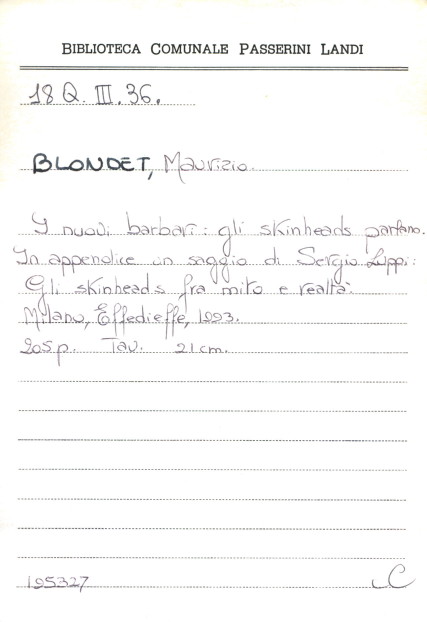 BIBLIOTECA COMUNALE PASSERINI LANDI
18 Q. III. 36.
BLONDET, Maurizio.
I nuovi barbari: gli skinheads parlano.
In appendice un saggio di Sergio Luppi:
Gli skinheads fra mito e realtà.
Milano, Effedieffe, 1993.
205 p. Tav. 21 cm.
195327 C